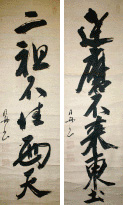 達磨不来東土
二祖不往西天